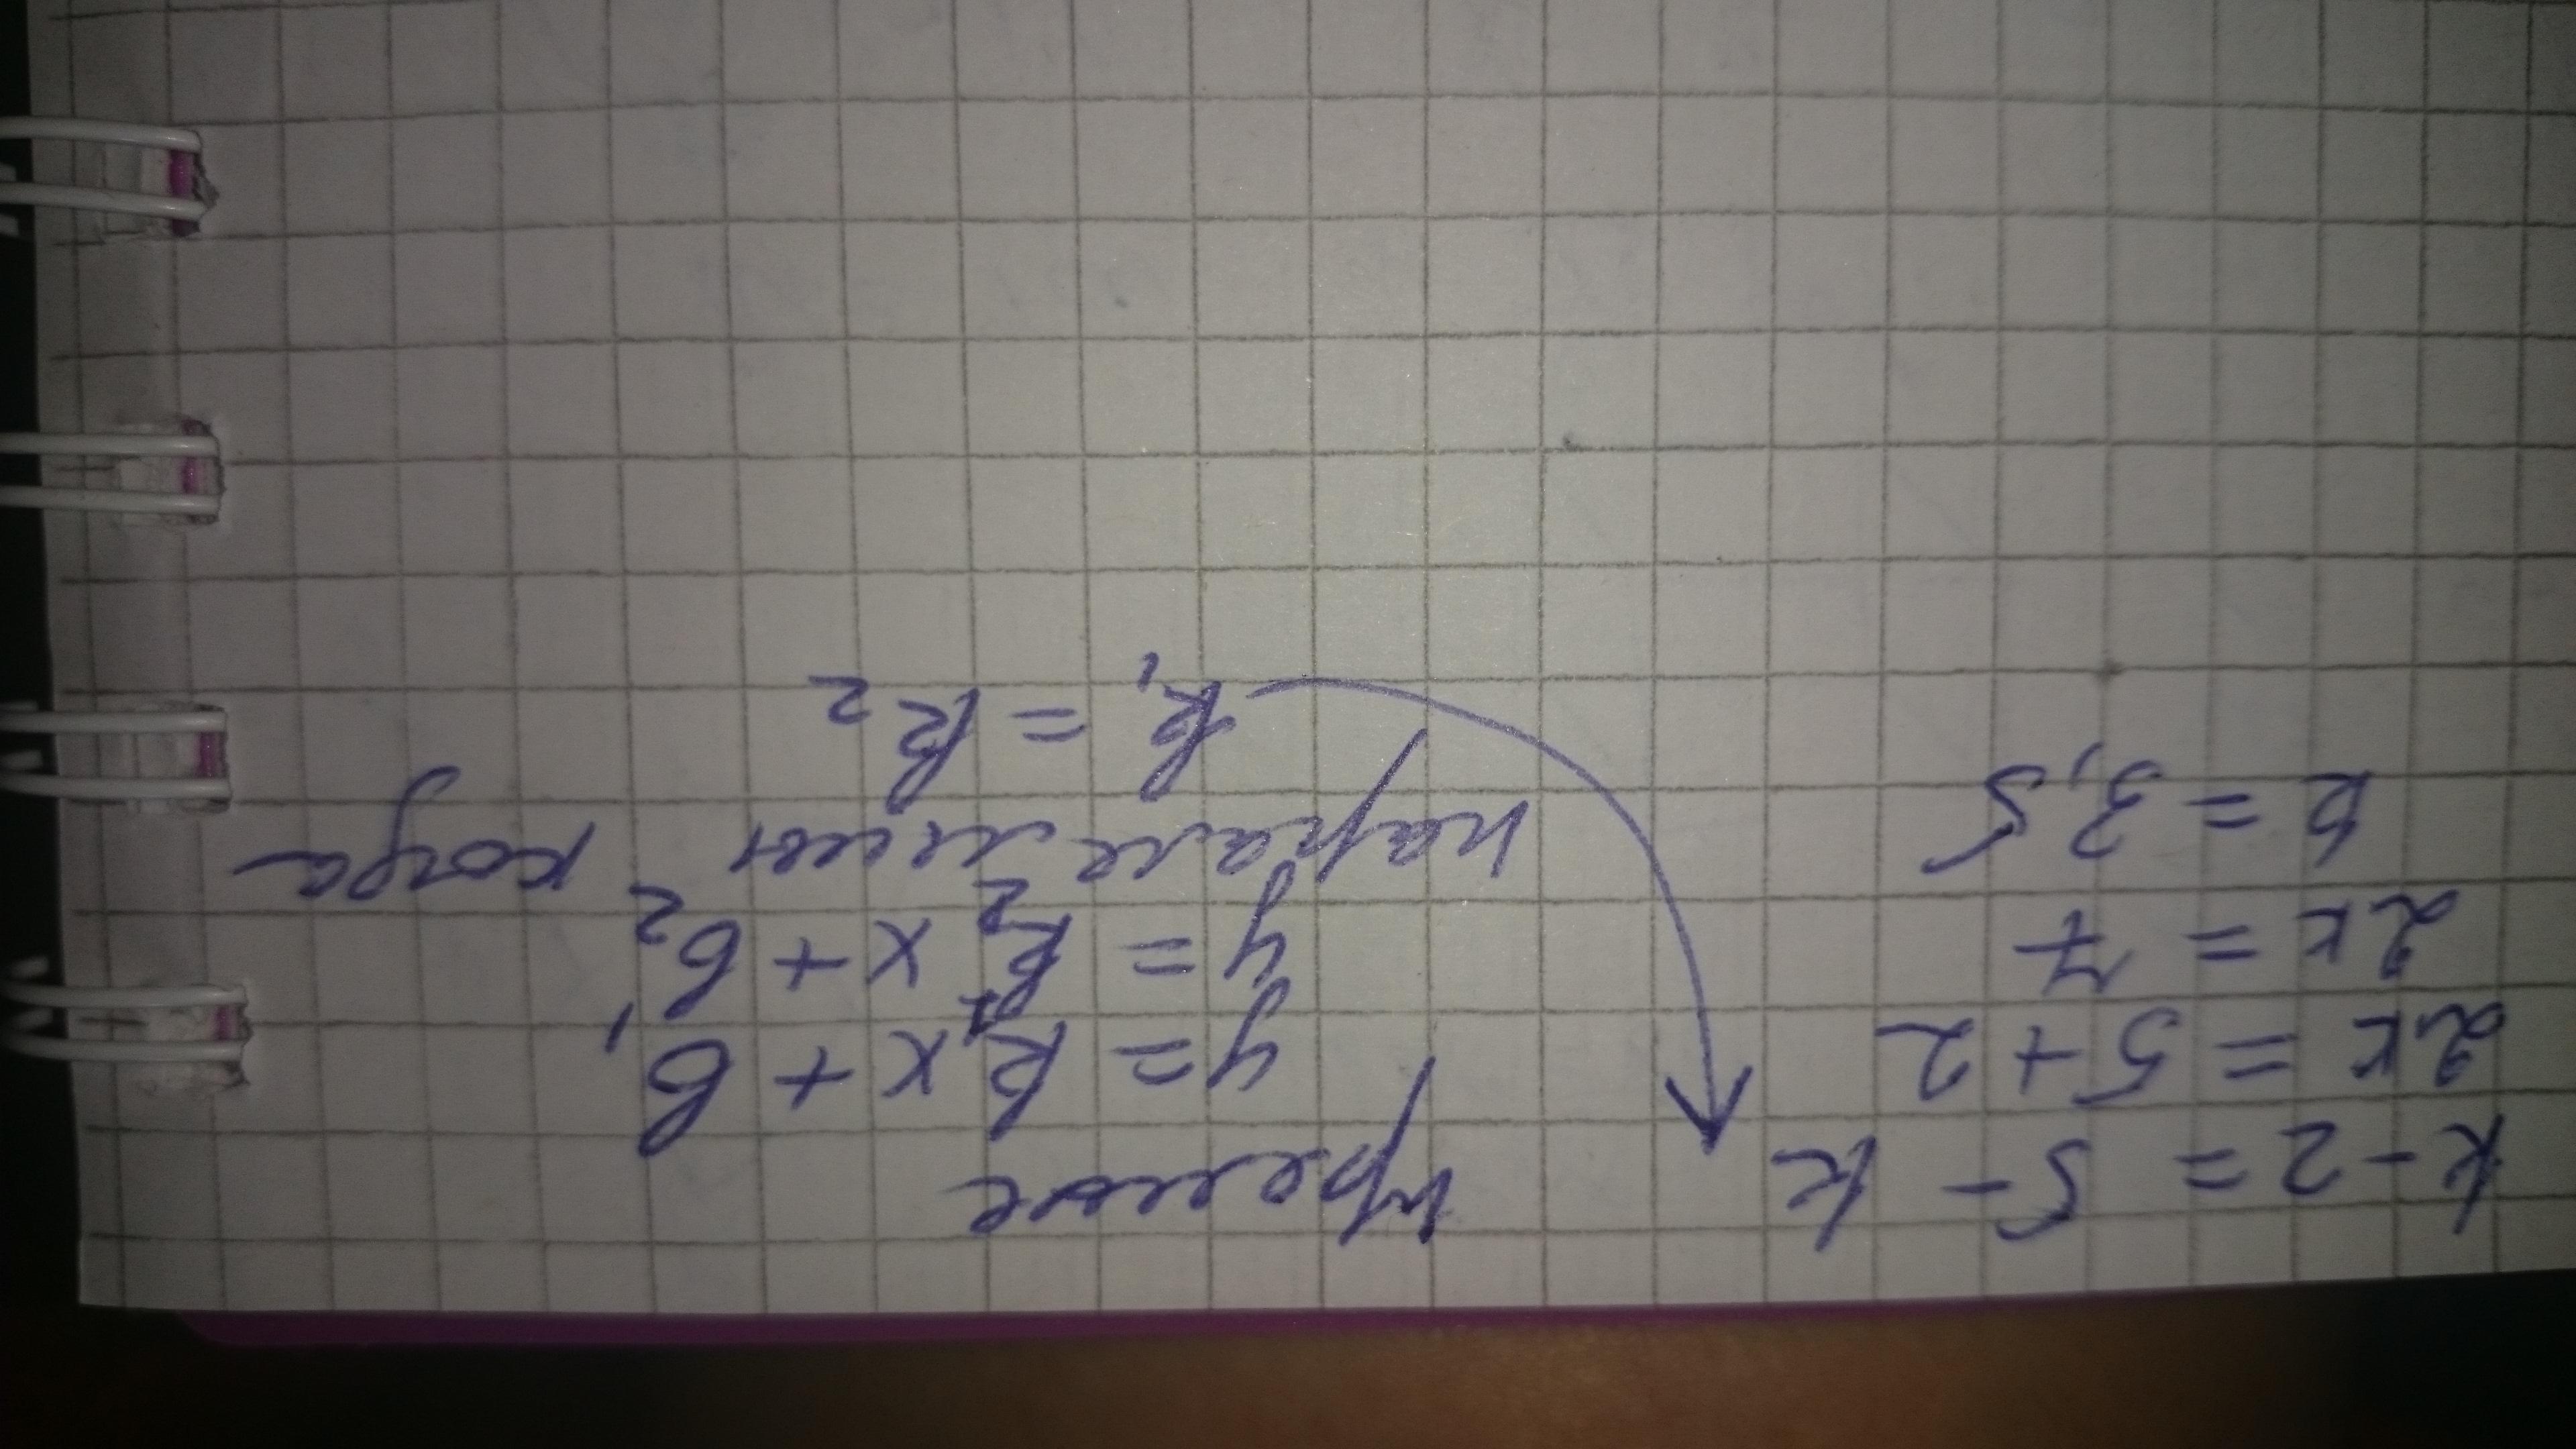 k - 2 = 5 - k
2k = 5 + 2
2k = 7
k = 3,5
прямые
y = k₁x + b₁
y = k₂x + b₂
паралельны когда
k₁ = k₂